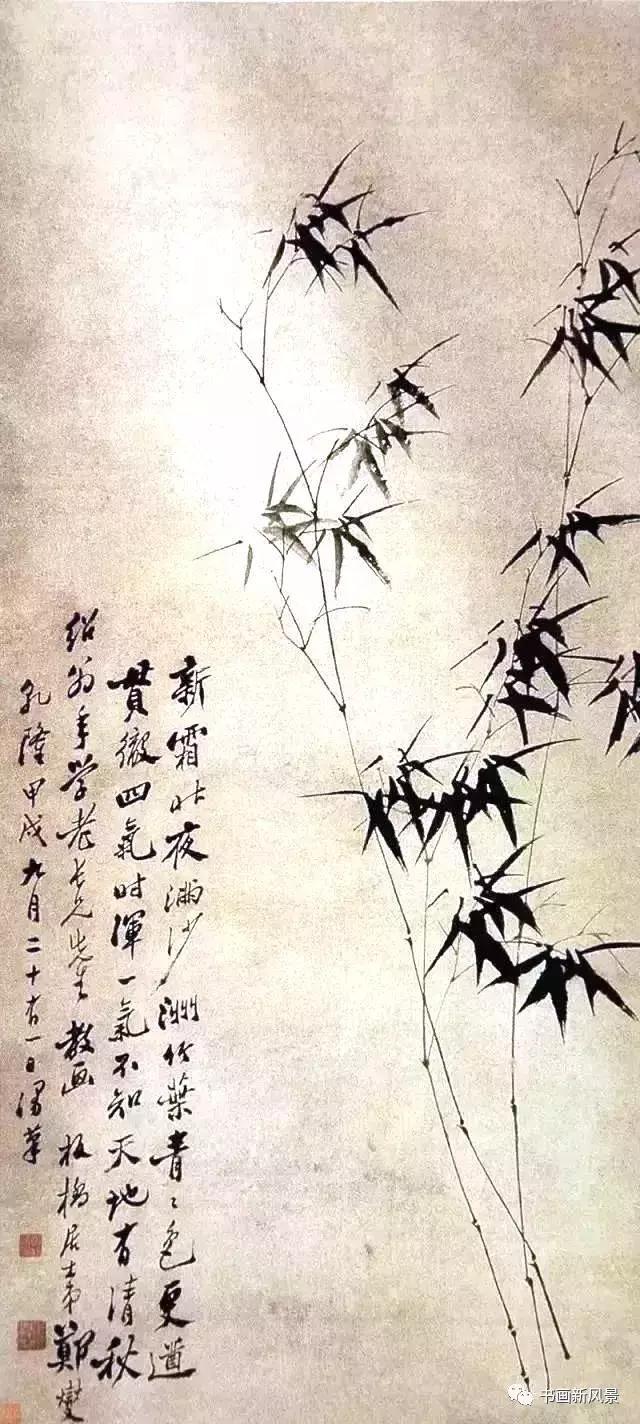 新霜昨夜满沙洲竹葉青〻色更遒
貫徹四氣时渾一氣不知天地有清秋
绍翁年学老长兄先生教画板橋居士弟鄭燮
乾隆甲戌九月二十有一日
书画新风景